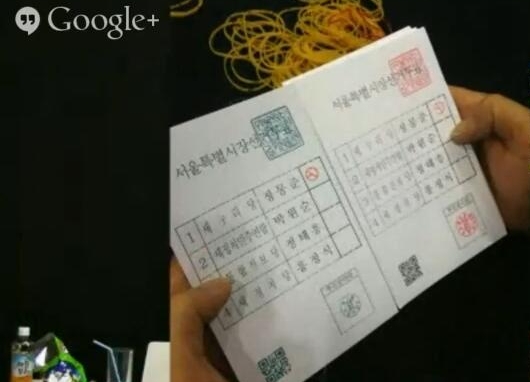 Google+
서울특별시장선
1 새누리당 정몽준
2 새정치민주연합 박원순
통합진보당 정태흥
4 새정치당 홍정식
서울특별시장선거투표
1 새누리당 정몽준
2 새정치민주연합 박원순
3 통합진보당 정태흥
4 새정치당 홍정식